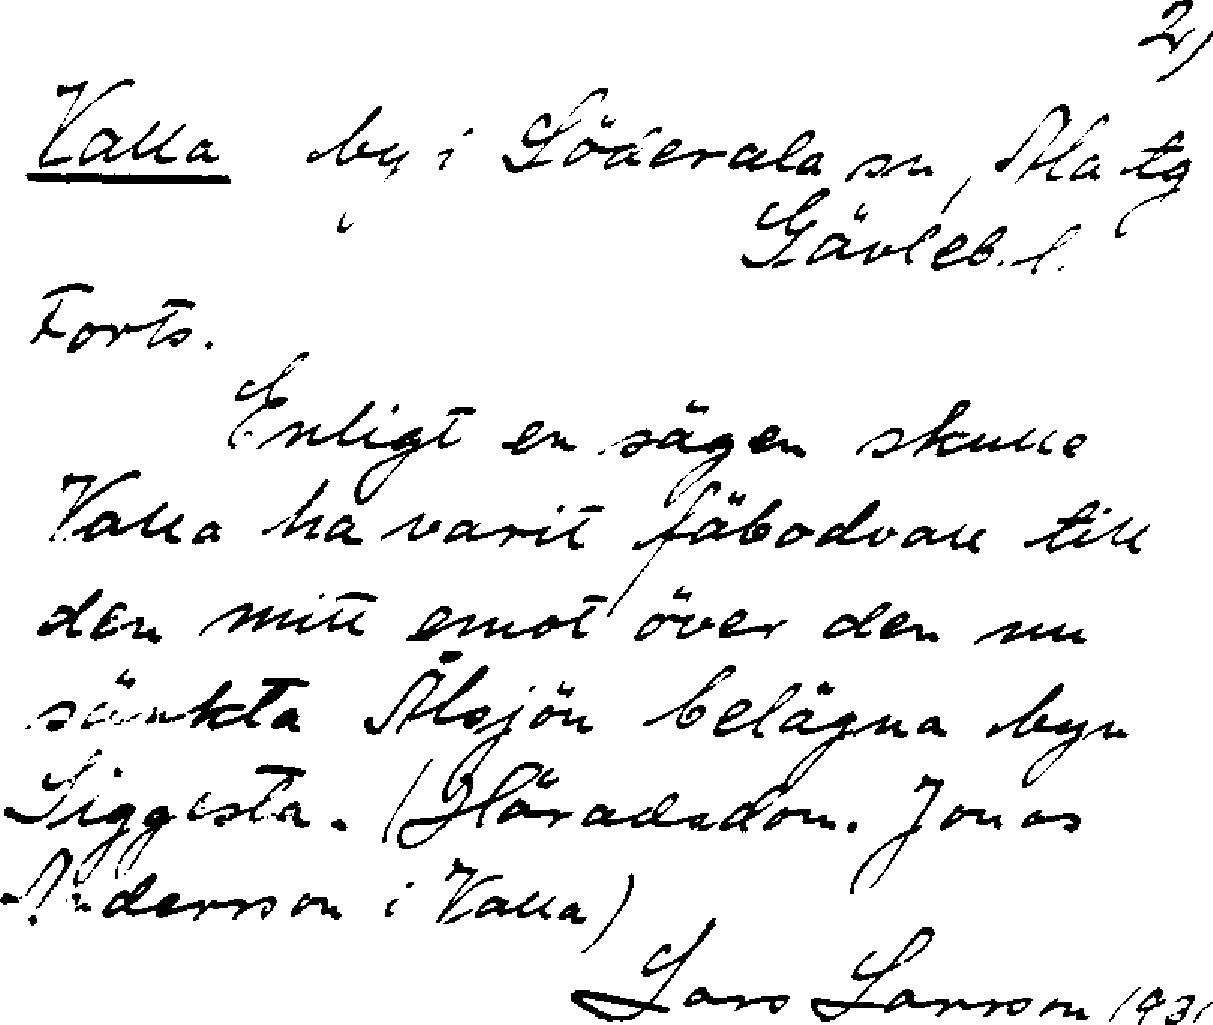 2)
Valla by i Söderala sn, Ala tg
Gävleb. l.
Forts.
Enligt en sägen skulle
Valla ha varit fäbodvall till
den mitt emot över den nu
sänkta Ålsjön belägna byn
Siggesta. (Häradsdom. Jonas
Andersson i Valla)
Lars Larsson 1931